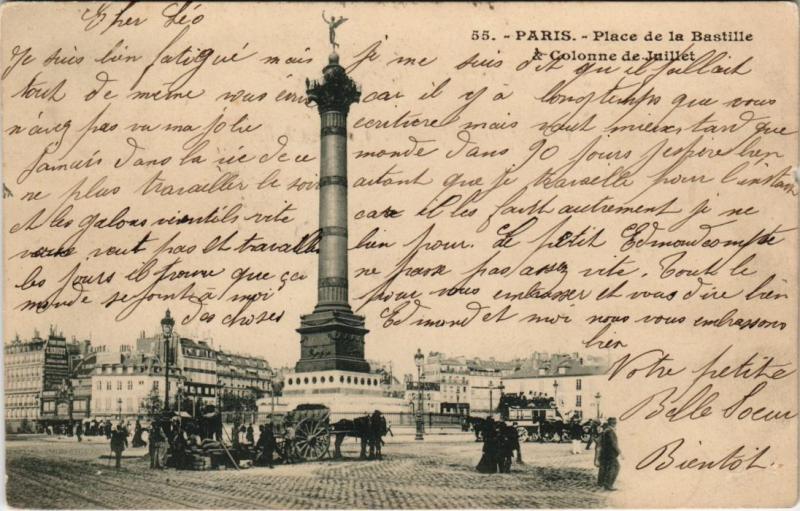 55. - PARIS. - Place de la Bastille
& Colonne de Juillet
Cher Léo
Je suis bien fatigué mais
tout de même vous
n'avez pas vu ma jolie
Jamais dans la vie de ce
ne plus travailler le soir
et les galons vite
veut pas et
les jours il que ça
monde à moi
des choses
je me suis dit qu'il fallait
car il y a longtemps que vous
ecritiere mais vaut mieux tard que
monde dans 90 jours j'espère bien
autant que je travaille pour l'instant
car il les faut autrement je ne
bien pour. Le petit Edmond compte
ne pas assez vite. Tout le
pour vous embrasser et vous dire bien
Edmond et moi nous vous embrassons
bien
Votre petite
Belle Soeur
Bientôt